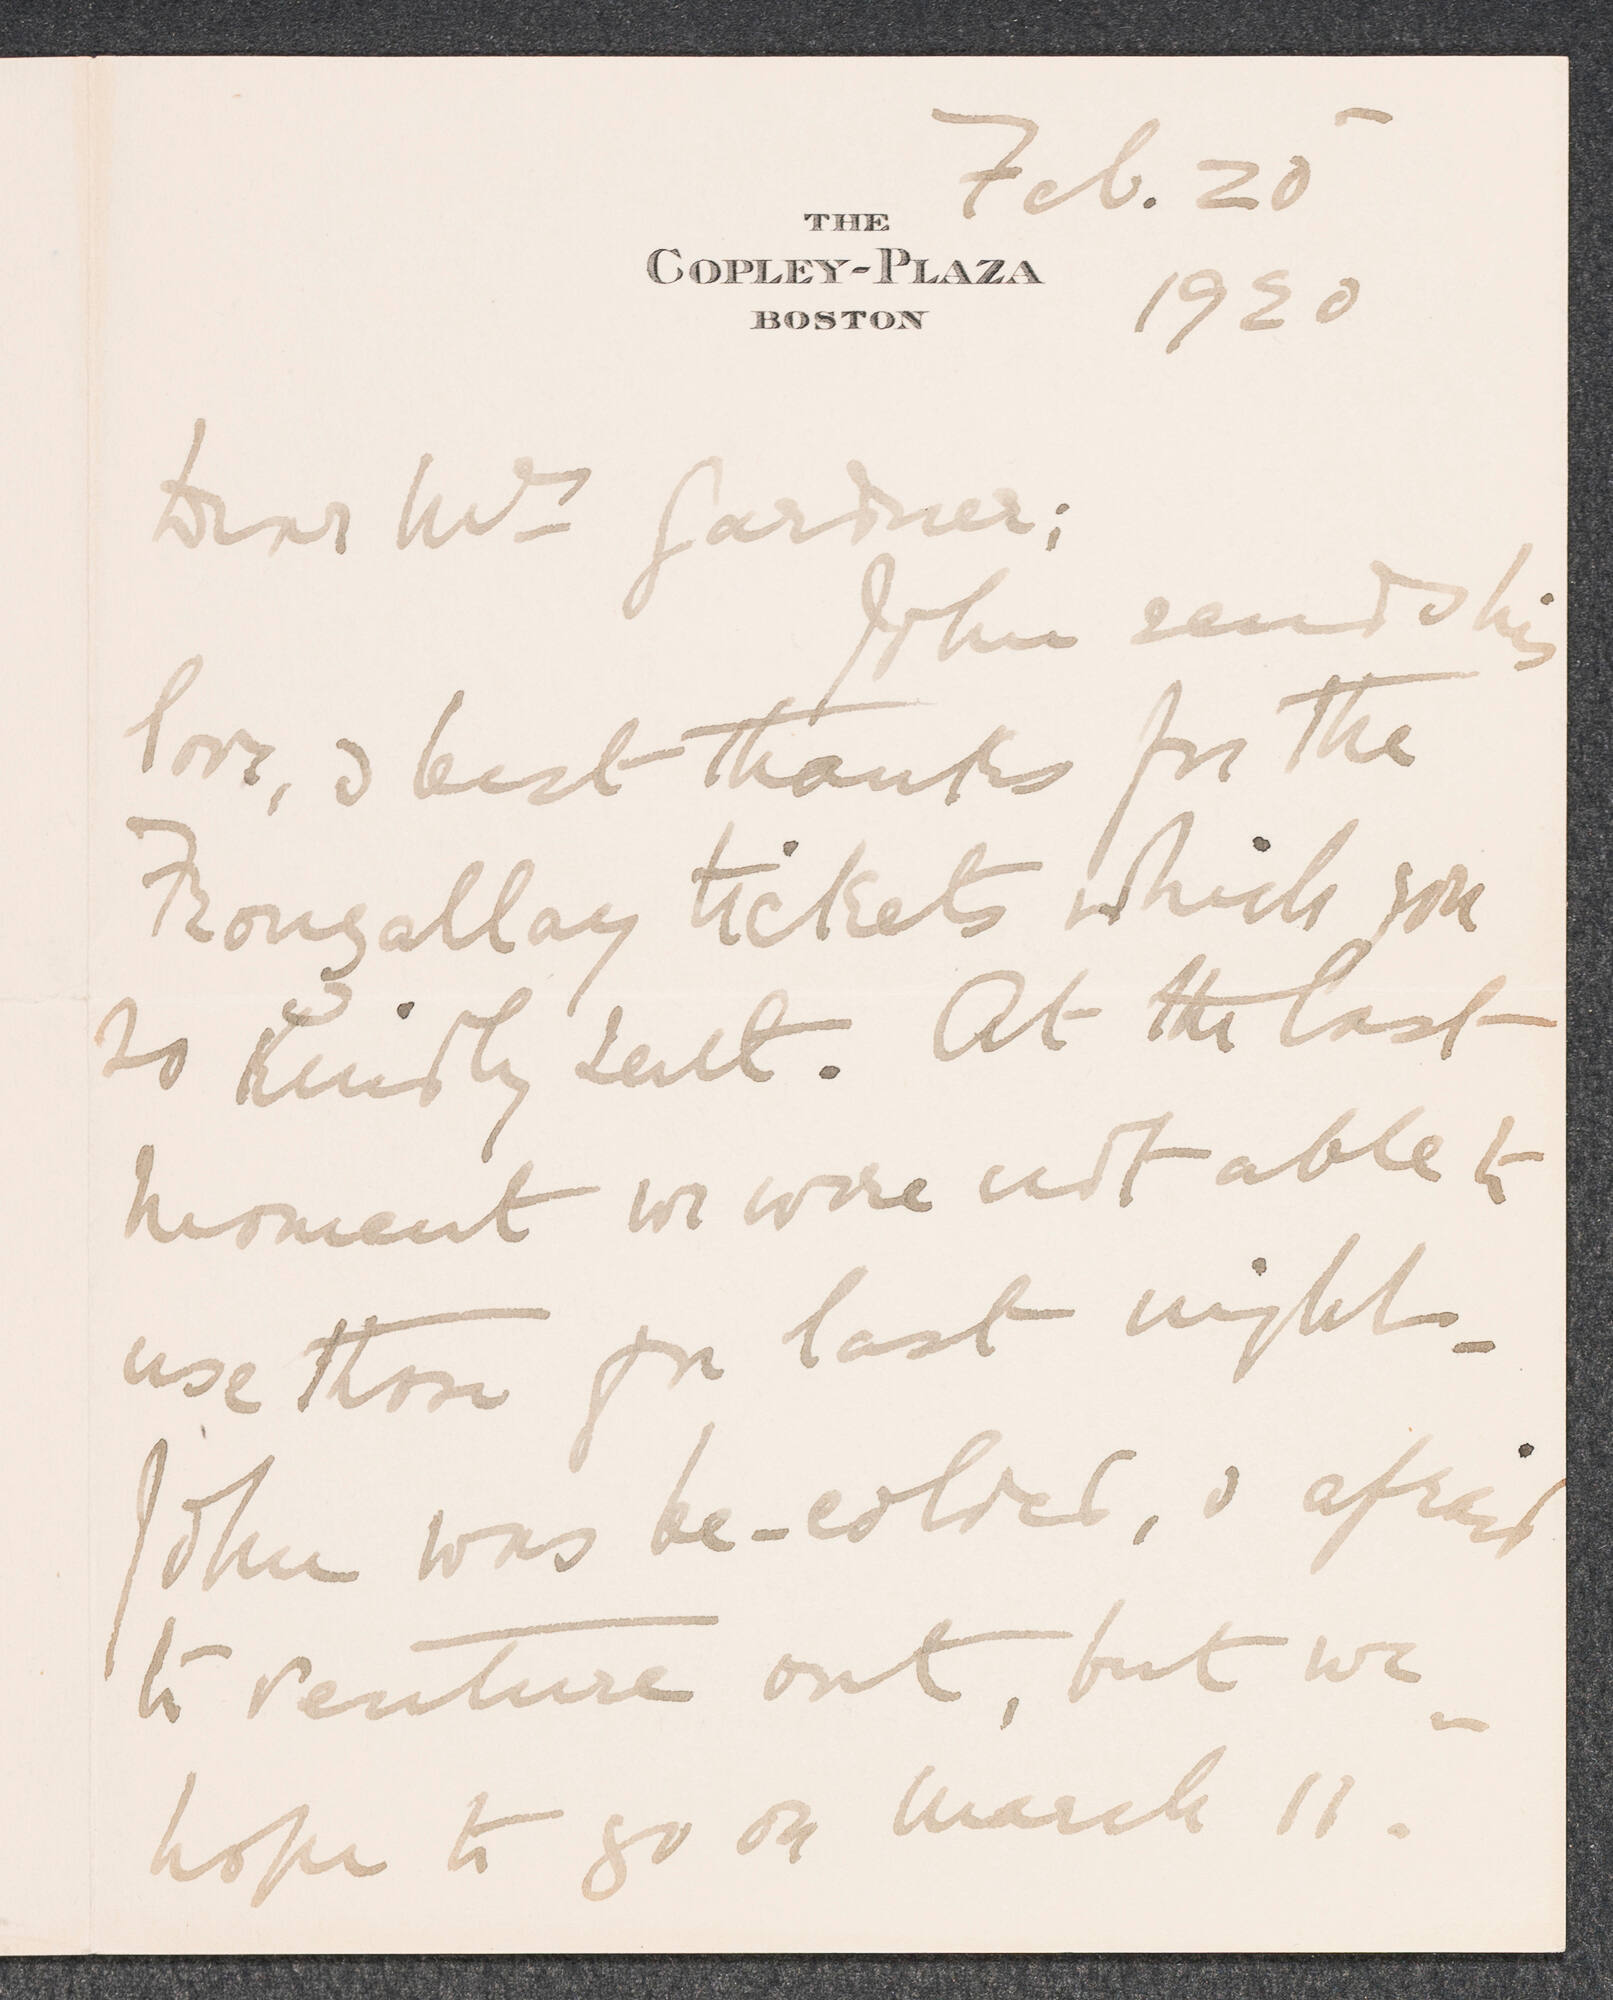 Feb. 25
THE
COPLEY-PLAZA
BOSTON
1920
Dear Mrs Gardner;
John sends his
love, & best thanks for the
Frongallay tickets which you
so kindly sent. At the last
moment we were not able to
use those for last night -
John was be-colded, & afraid
to venture out, but we
hope to go on March 11.